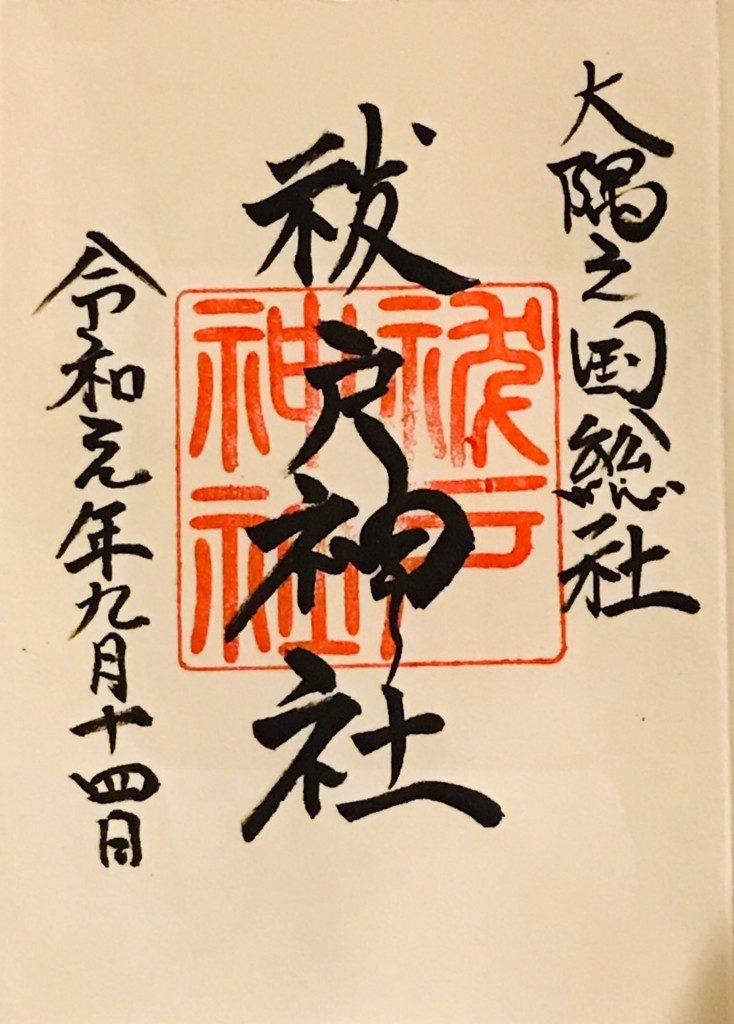 大隅之国総社
祓戸神社
祓戸
神社
令和元年九月十四日